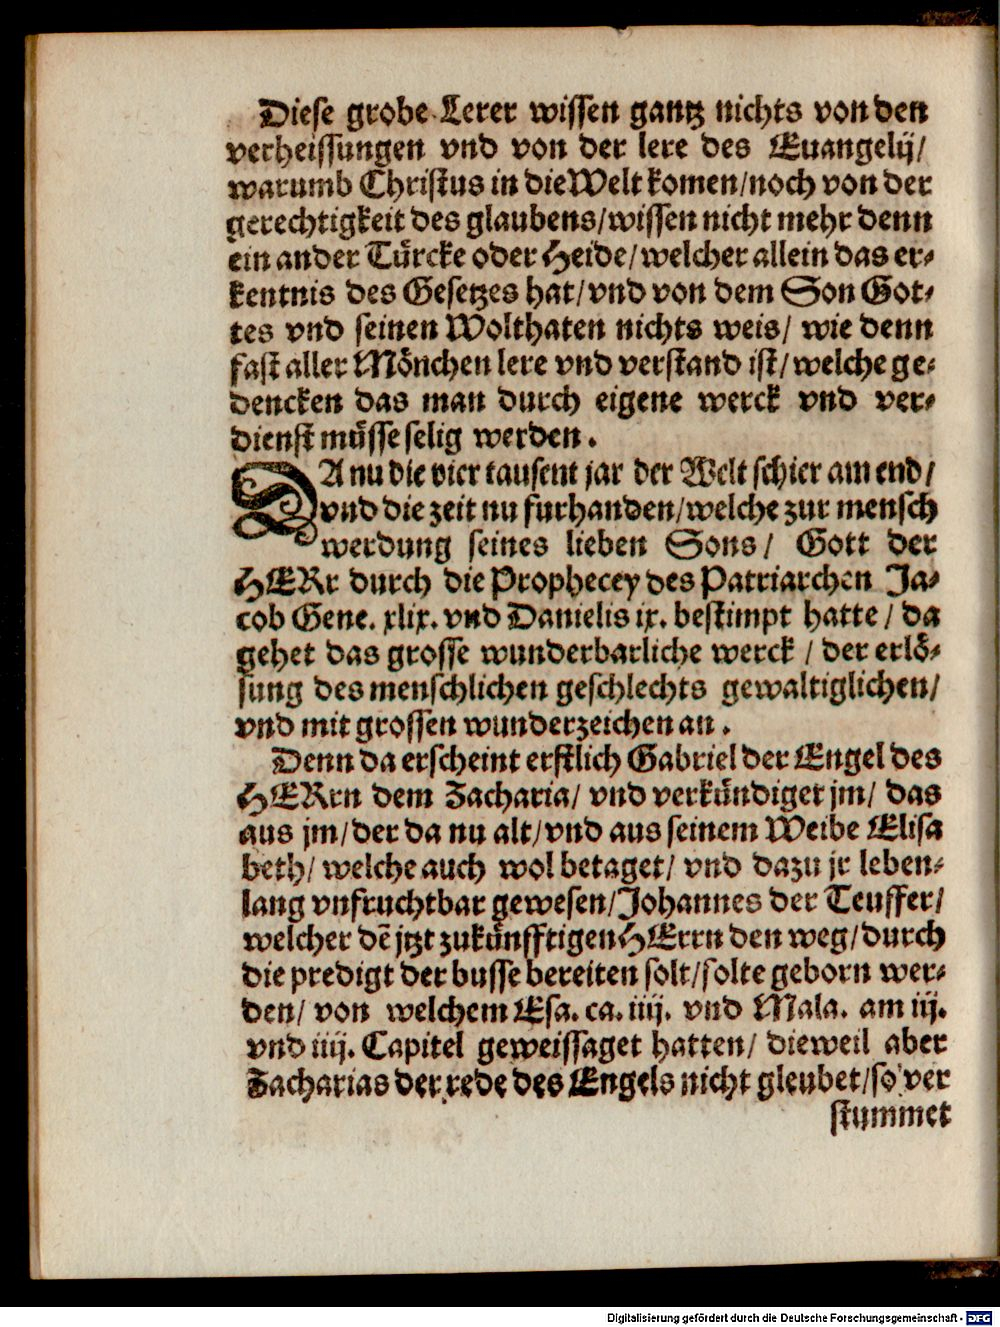 Diese grobe Lerer wissen gantz nichts von den
verheissungen vnd von der lere des Euangelij/
warumb Christus in die Welt komen/noch von der
gerechtigkeit des glaubens/wissen nicht mehr denn
ein ander Türcke oder Heide/welcher allein das er-
kentnis des Gesetzes hat/vnd von dem Son Got-
tes vnd seinen Wolthaten nichts weis/ wie denn
fast aller Mönchen lere vnd verstand ist/welche ge-
dencken das man durch eigene werck vnd ver-
dienst müsse selig werden.
DA nu die vier tausent jar der Welt schier am end/
vnd die zeit nu furhanden/welche zur mensch
werdung seines lieben Sons/ Gott der
HERr durch die Prophecey des Patriarchen Ja-
cob Gene. xlix. vnd Danielis ix. bestimpt hatte/ da
gehet das grosse wunderbarliche werck/ der erlö-
sung des menschlichen geschlechts gewaltiglichen/
vnd mit grossen wunderzeichen an.
Denn da erscheint erstlich Gabriel der Engel des
HERrn dem Zacharia/ vnd verkündiget jm/ das
aus jm/der da nu alt/vnd aus seinem Weibe Elisa
beth/ welche auch wol betaget/ vnd dazu jr leben-
lang vnfruchtbar gewesen/Johannes der Teuffer/
welcher dē jtzt zukünfftigen HErrn den weg/durch
die predigt der busse bereiten solt/solte geborn wer-
den/ von welchem Esa. ca. iiij. vnd Mala. am iij.
vnd iiij. Capitel geweissaget hatten/ dieweil aber
Zacharias der rede des Engels nicht gleubet/so ver
stummet
Digitalisierung gefördert durch die Deutsche Forschungsgemeinschaft - DFG